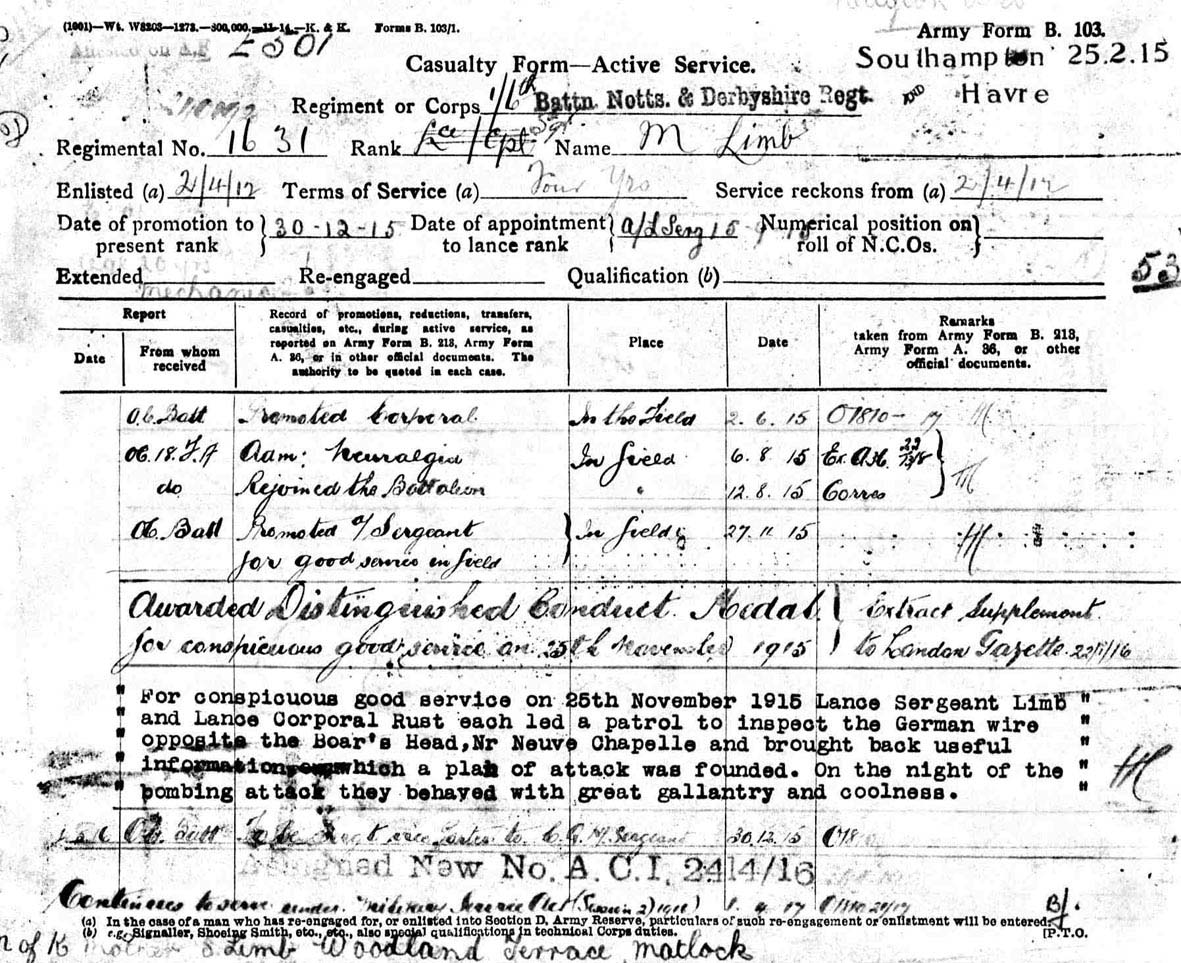 (1001)—Wt. W8203—1273.—300,000.—11-14.—K. & K. Forms B. 103/1.
Army Form B. 103.
Southampton 25.2.15
Casualty Form—Active Service.
AND Havre
Regiment or Corps 1/6th Battn. Notts. & Derbyshire Regt.
Regimental No. 1631 Rank Lce/Cpl Sgt Name M Limb
Enlisted (a) 2/4/12 Terms of Service (a) Four Yrs Service reckons from (a) 2/4/12
Date of promotion to present rank } 30-12-15 Date of appointment to lance rank } a/L Serg 15 Numerical position on roll of N.C.Os. }
Extended Re-engaged Qualification (b)
53
mechanic
Report
Date
From whom received
Record of promotions, reductions, transfers, casualties, etc., during active service, as reported on Army Form B. 213, Army Form A. 36, or in other official documents. The authority to be quoted in each case.
Place
Date
Remarks taken from Army Form B. 213, Army Form A. 36, or other official documents.
O.C. Batt Promoted Corporal In the Field 2.6.15
OC. 18. F.A Adm: Neuralgia In Field 6.8.15
do Rejoined the Battalion " 12.8.15 Corres
OC. Batt Promoted a/Sergeant In field 27.11.15
for good service in field
Awarded Distinguished Conduct Medal } Extract Supplement
for conspicuous good service on 25th November 1915 } to London Gazette 22/1/16
" For conspicuous good service on 25th November 1915 Lance Sergeant Limb "
" and Lance Corporal Rust each led a patrol to inspect the German wire "
" opposite the Boar's Head,Nr Neuve Chapelle and brought back useful "
" information which a plan of attack was founded. On the night of the "
" bombing attack they behaved with great gallantry and coolness. "
O.C. Batt To be Sergt vice to C.Q.M. Sergeant 30.12.15
Assigned New No. A.C.I. 2414/16
Continues to serve under Military Service Act (Session 2) 1916 1.4.17
(a) In the case of a man who has re-engaged for, or enlisted into Section D, Army Reserve, particulars of such re-engagement or enlistment will be entered.
(b) e.g., Signaller, Shoeing Smith, etc., etc., also special qualifications in technical Corps duties.
[P.T.O.
n of K Mother S. Limb Woodland Terrace Matlock